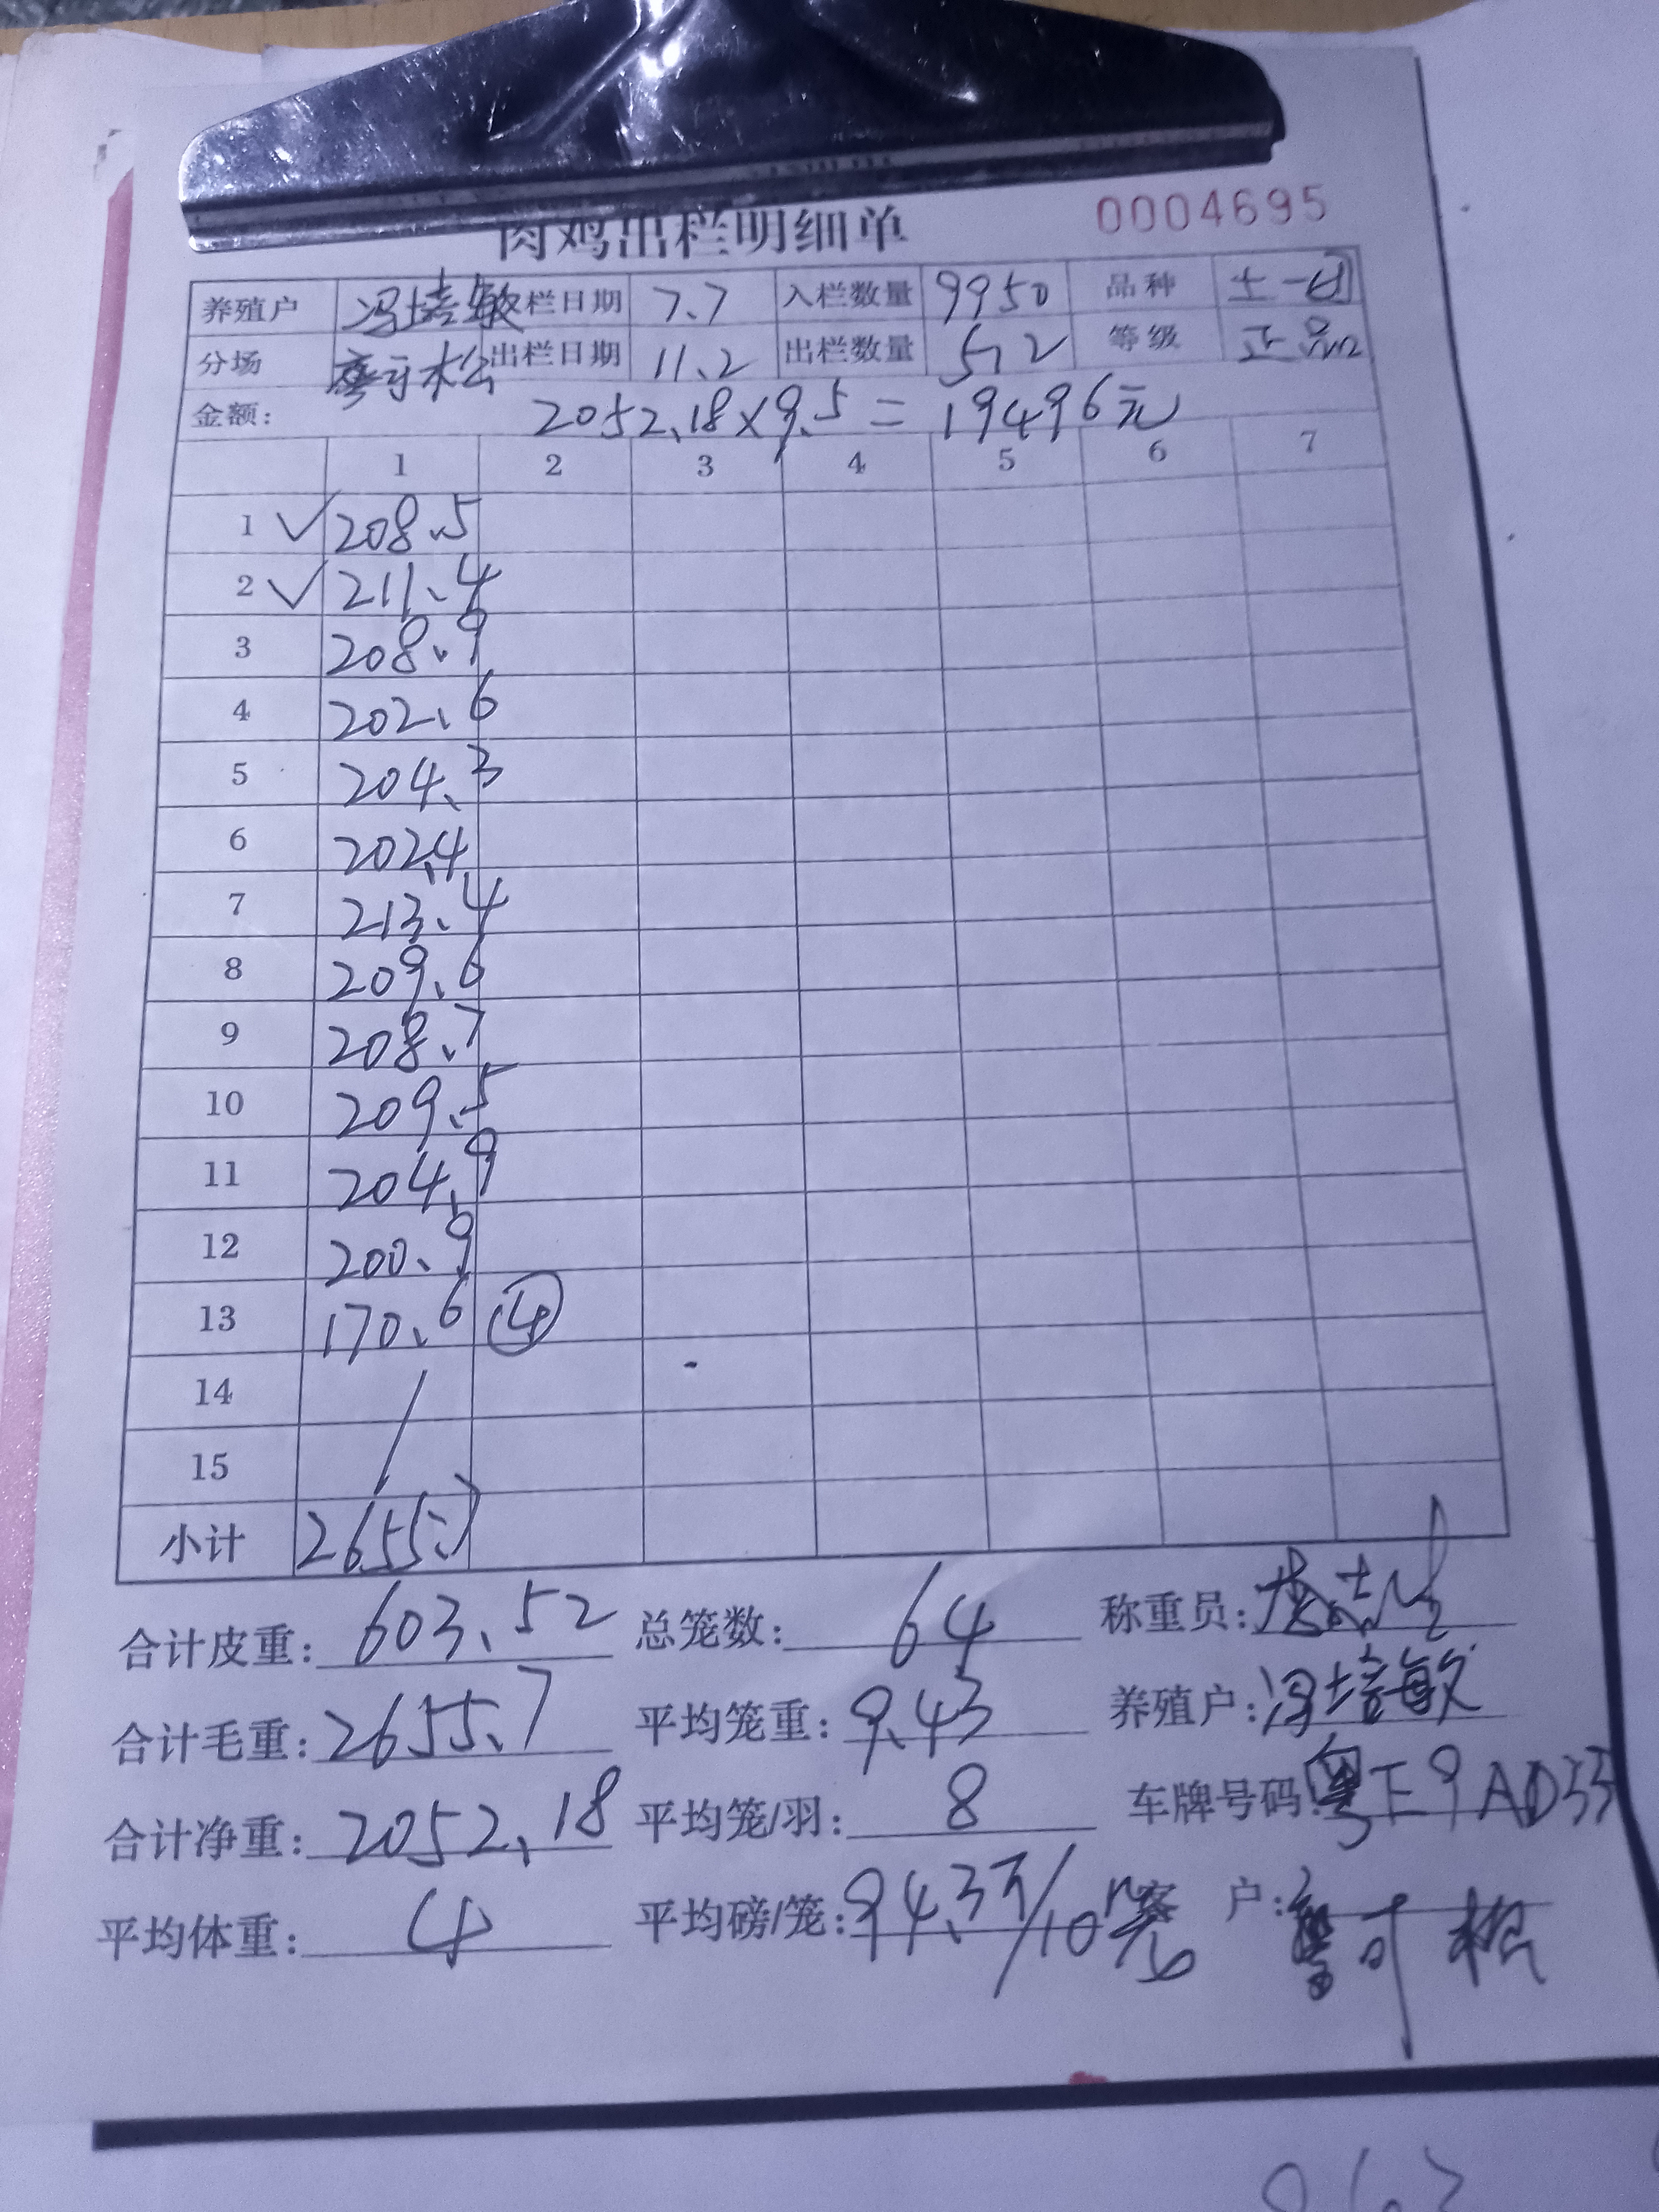 肉鸡出栏明细单 0004695
养殖户 冯培敏 栏日期 7.7 入栏数量 9950 品种
分场 出栏日期 11.2 出栏数量 512 等级 正品
金额: 2052.18×9.5=19496元
1 2 3 4 5 6 7
1 ✓ 208.5
2 ✓ 211.4
3 208.9
4 202.6
5 204.3
6 202.4
7 213.4
8 209.6
9 208.7
10 209.5
11 204.9
12 200.9
13 170.6 ④
14
15
小计 2655.7
合计皮重: 603.52 总笼数: 64 称重员:
合计毛重: 2655.7 平均笼重: 9.43 养殖户: 冯培敏
合计净重: 2052.18 平均笼/羽: 8 车牌号码:
平均体重: 4 平均磅/笼: 94.3斤/10笼 客户: